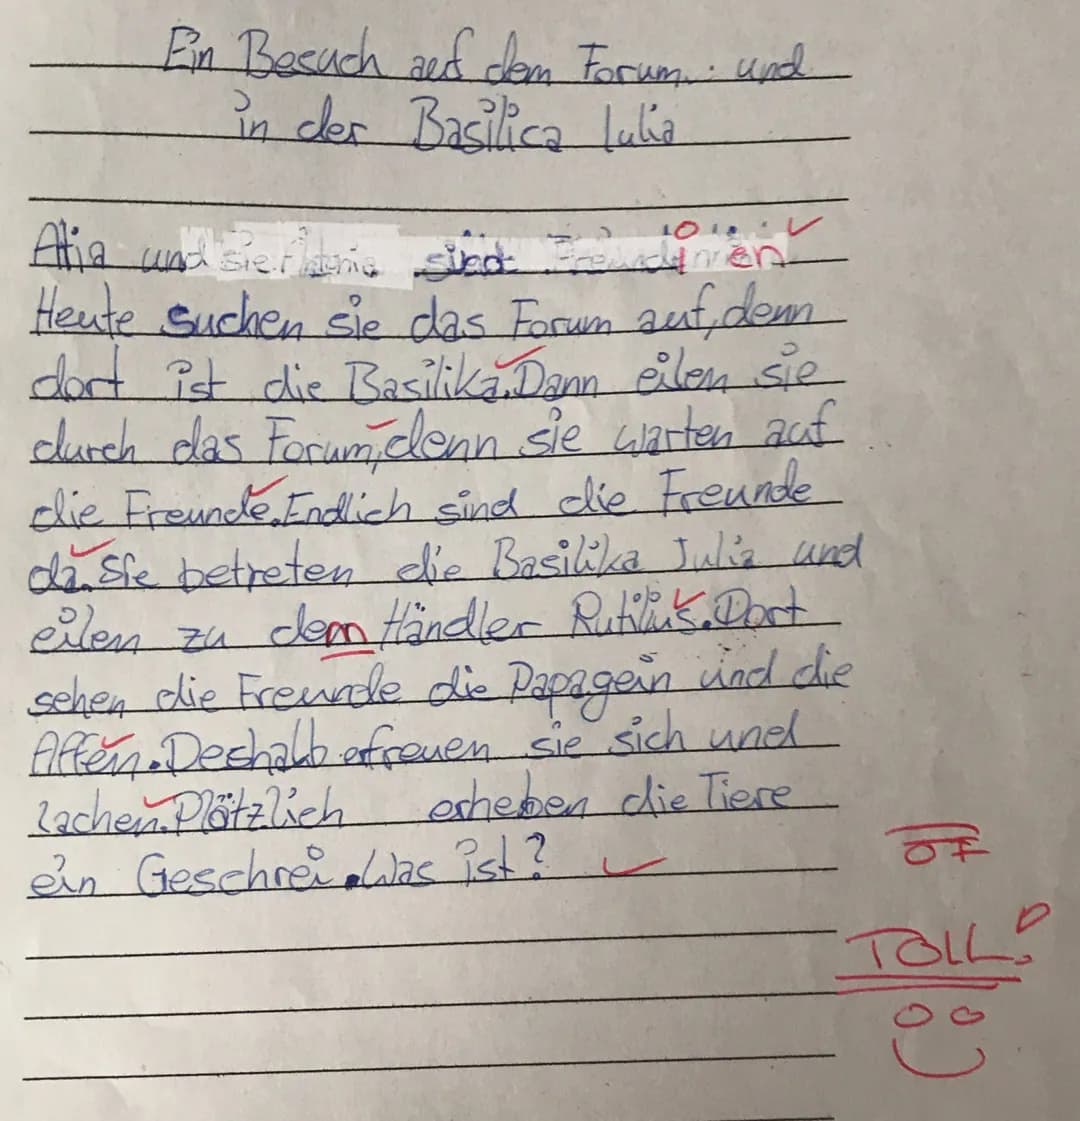 Ein Besuch auf dem Forum und
in der Basilica Iulia
Atia und sind Freundinnen
Heute suchen sie das Forum auf, denn
dort ist die Basilika. Dann eilen sie
durch das Forum, denn sie warten auf
die Freunde. Endlich sind die Freunde
da. Sie betreten die Basilika Julia und
eilen zu dem Händler Rutilius. Dort
sehen die Freunde die Papagein und die
Affen. Deshalb erfreuen sie sich und
lachen. Plötzlich erheben die Tiere
ein Geschrei. Was ist?
oF
TOLL!